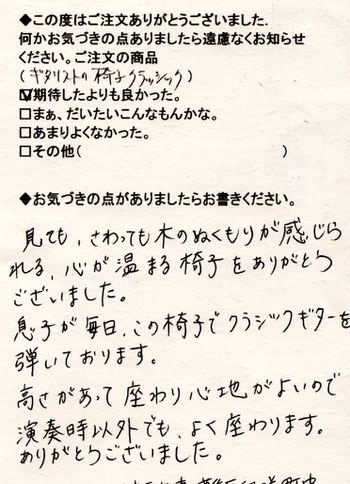 ◆この度はご注文ありがとうございました.
何かお気づきの点ありましたら遠慮なくお知らせ
ください。ご注文の商品
(ギタリストの椅子クラシック)
☑期待したよりも良かった。
□まぁ、だいたいこんなもんかな。
□あまりよくなかった。
□その他( )
◆お気づきの点がありましたらお書きください。
見ても、さわっても木のぬくもりが感じら
れる、心が温まる椅子をありがとう
ございました。
息子が毎日、この椅子でクラシックギターを
弾いております。
高さがあって座わり心地がよいので
演奏時以外でも、よく座わります。
ありがとうございました。